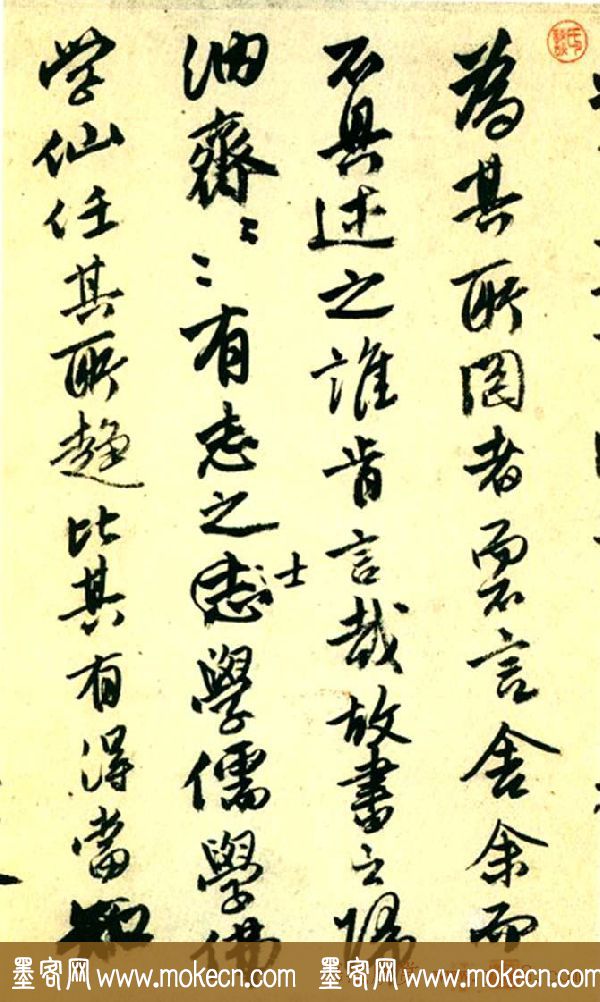 為其所罔者而不言舍余而
不具述之誰肯言哉故書之歸
齋〻〻有志之志士學儒學佛
学仙任其所趨比其有得當知
墨客网 www.mokecn.com 墨客网 www.mokecn.com